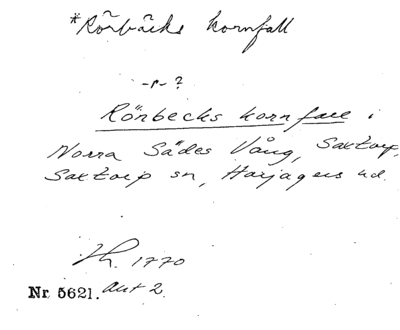 *Rörbäcks kornfall
-r- ?
Rörbecks korn face i
Norra Sädes Vång, Saxtorp,
Saxtorp sn, Harjagers hd.
1770
Nr 5621. akt 2.